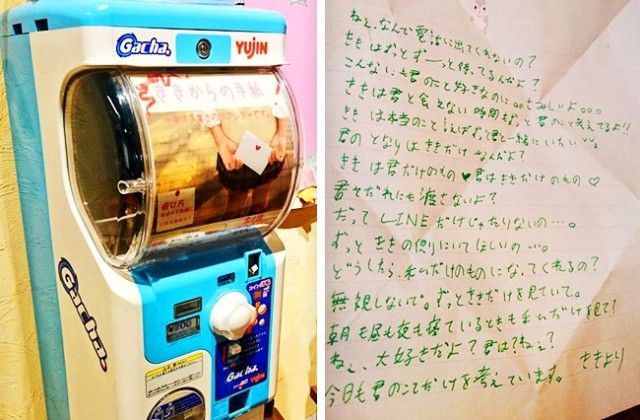 Gacha.
YUJIN
ききからの手紙
遊び方
200
Gacha.
Gacha.
YUJIN
ねぇ、なんで電話に出てくれないの？
ききはずーっと待ってるんだよ？
こんなに君のこと好きなのに。。。さみしいよ。。。
ききは君と会えない時間もずっと君のこと考えてるよ！！
ききは本当のこと言えばずっと君と一緒にいたい
君のとなりはききだけなんだよ？
ききは君だけのもの♥君はききだけのもの♡
君をだれにも渡さないよ？
だってLINEだけじゃたりないの…。
ずっとききの側りにいてほしいの…。
どうしたら、私だけのものになってくれるの？
無視しないで。ずっとききだけを見ていて。
朝も昼も夜も寝ているときも私だけ見て！
ねぇ、大好きだよ？君は？ねぇ？
今日も君のことだけを考えています。ききより